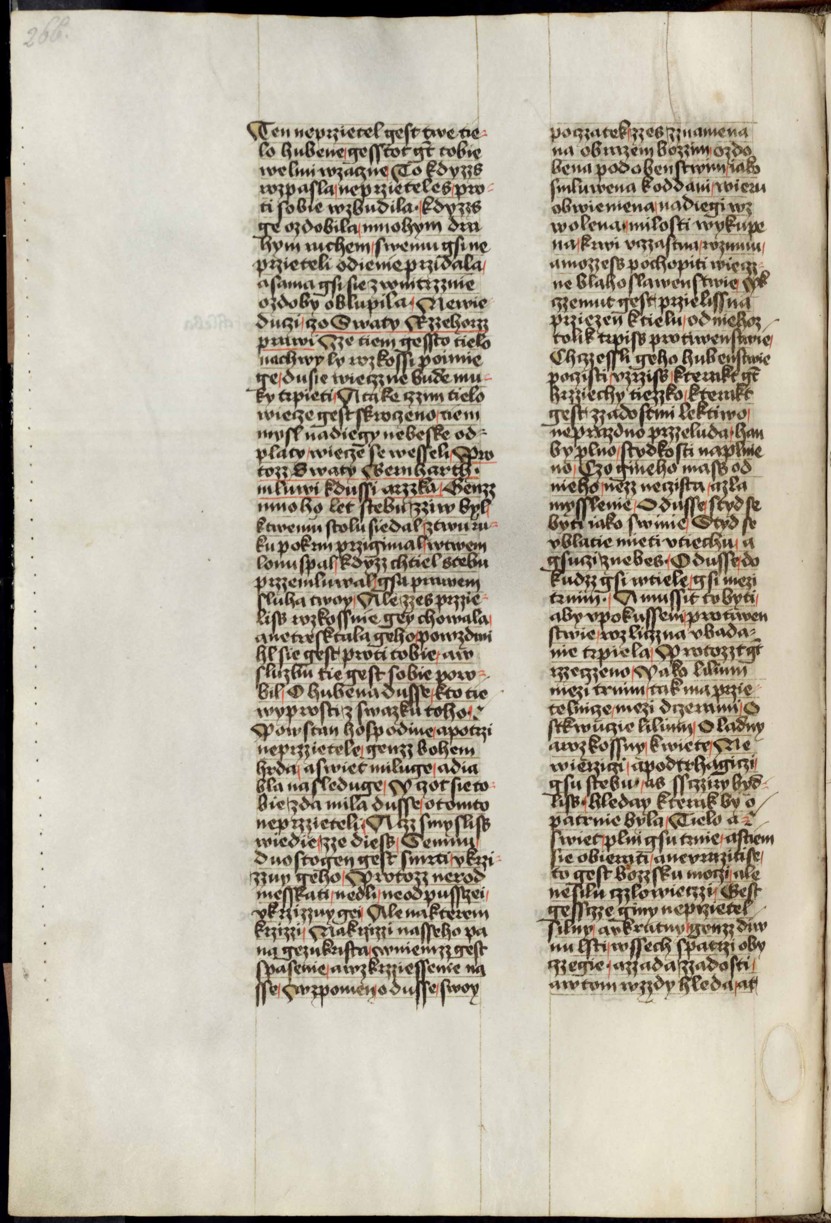 266.
Ten neprzietel gest twe tie-
lo hubene gesstot gt tobie
welmi wzaczne To kdyzzs
rozpasla neprzieteles pro-
ti sobie wzbudila kdyzzs
ge ozdobila mnohym dra
hym ruchem swemu gsi ne
przieteli odienie przidala
a sama gsi sie z wnitrznie
ozdoby oblupila Newie
duczi czo Swaty Rzehorz
prawi Zze tiem gessto tielo
nachwyly rozkossi poimie
ge dusie wieczne bude mu-
ky trpieti A take czim tielo
wiecze gest skroczeno tiem
mysl nadiegy nebeske od-
platy wiecze se wesseli Pro
tozz Swaty Bernharth
mluwi k dussi arzka Genzz
mnoho let stebu zziw byl
k twemu stolu siedal z twu ru-
ku pokrm przigimal w twem
lonu spal kdyzz chtiel stebu
przemluwal gsa prawem
sluha twoy Ale zzes przie-
liss rozkossnie gey chowala
a netresktala geho powzdwi
hl sie gest proti tobie aw
sluzbu tie gest sobie poro-
bil O hubena dusse kto tie
wyprosti z swazku toho
Powstan hospodine a potrzi
neprzietele genzz bohem
hrda a swiet miluge a dia
bla nasleduge W czot sie to
bie zda mila dusse o tomto
neprzieteli Azz smysliss
wiedie zze diess Gemu
duostogen gest smrti vkrzi-
zzuy geho Protozz nerod
messkati nedli neodpussczei
vkrzizzuy gei Ale na kterem
krzizzi Na krzizzi nasseho pa
na gezukrista w niemzz gest
spasenie a wzkrziessenie na
sse Wzpomen o dusse swoy
poczatek zzes zznamena
na obrazem bozzim ozdo
bena podobenstwim iako
smluwena k oddani wieru
obwienena nadiegi wz
wolena milosti wykupe
na krwi vczastna rozumu
a mozzess pochopiti wiecz
ne blahoslawenstwie Y k
czemut gest przielissna
prziezen k tielu od niehoz
tolik trpiss protiwenstwie
Chczessli geho hubenstwie
poczisti vzrziss kterakt gt
hrziechy tiezko kterakt
gest zzadostmi lektiwo
neprazdno przeluda han
by plno stydkosti naplnie
no Czo gineho mass od
nieho nezz neczista a zla
myssleme O dusse styd se
byti iako swinie Styd se
v blatie mieti vtiechu a
gsuczi z nebes O dusse do
kudzz gsi w tiele gsi mezi
trnim A mussit to byti
aby v pokussem protiwen
stwie rozliczna v bada-
nie trpiela Protozzt gt
rzeczeno Yako lilium
mezi trnim tak ma przie
telnicze mezi dczerami O
stkwuczie lilium O ladny
a rozkossny kwiete Ne
wierzici a podtrhagiczi
gsu stebu as ssczury byd-
liss hleday kterak by o
patrnie byla Tielo a
swiet plni gsu trnie a stiem
sie obierati a nevraziti se
to gest bozzsku moczi ale
ne silu czlowieczi Gest
gesscze giny neprzietel
silny a vkrutny genzz diw
nu lsti wssech spatrzi oby
czzegie a zzada zzadosti
a w tom wzzdy hleda at